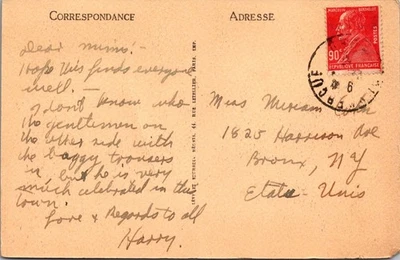 CORRESPONDANCE
ADRESSE
Dear Mims:-
Hope this finds everyone
well. -
I don't know who
the gentlemen on
the other side with
the baggy trousers
is but he is very
much celebrated in this
town.
Love & Regards to all
Harry.
Miss Miriam
1825 Harrison Ave
Bronx, NY
Etats-Unis
90c
POSTES
RÉPUBLIQUE FRANÇAISE